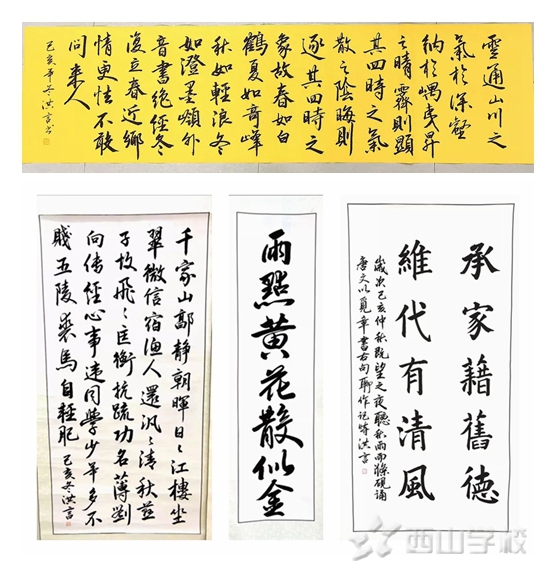 雲通山川之
氣於深壑
納於嵎曳昇
之晴霽則顯
其四時之氣
散之陰晦則
逐其四時之
象故春如白
鶴夏如奇峰
秋如輕浪冬
如澄墨嶺外
音書絕經冬
復立春近鄉
情更怯不敢
問來人
己亥年冬洪言书
千家山郭靜朝暉日々江樓坐
翠微信宿漁人還汎々清秋燕
子故飛々匡衡抗疏功名薄劉
向傳經心事違同學少年多不
賤五陵裘馬自輕肥
己亥冬洪言
雨點黃花散似金
承家藉舊德
維代有清風
歲次己亥仲秋既望之夜聽秋雨而滌硯誦
唐文以覓章書右句聊作記時洪言
西山学校